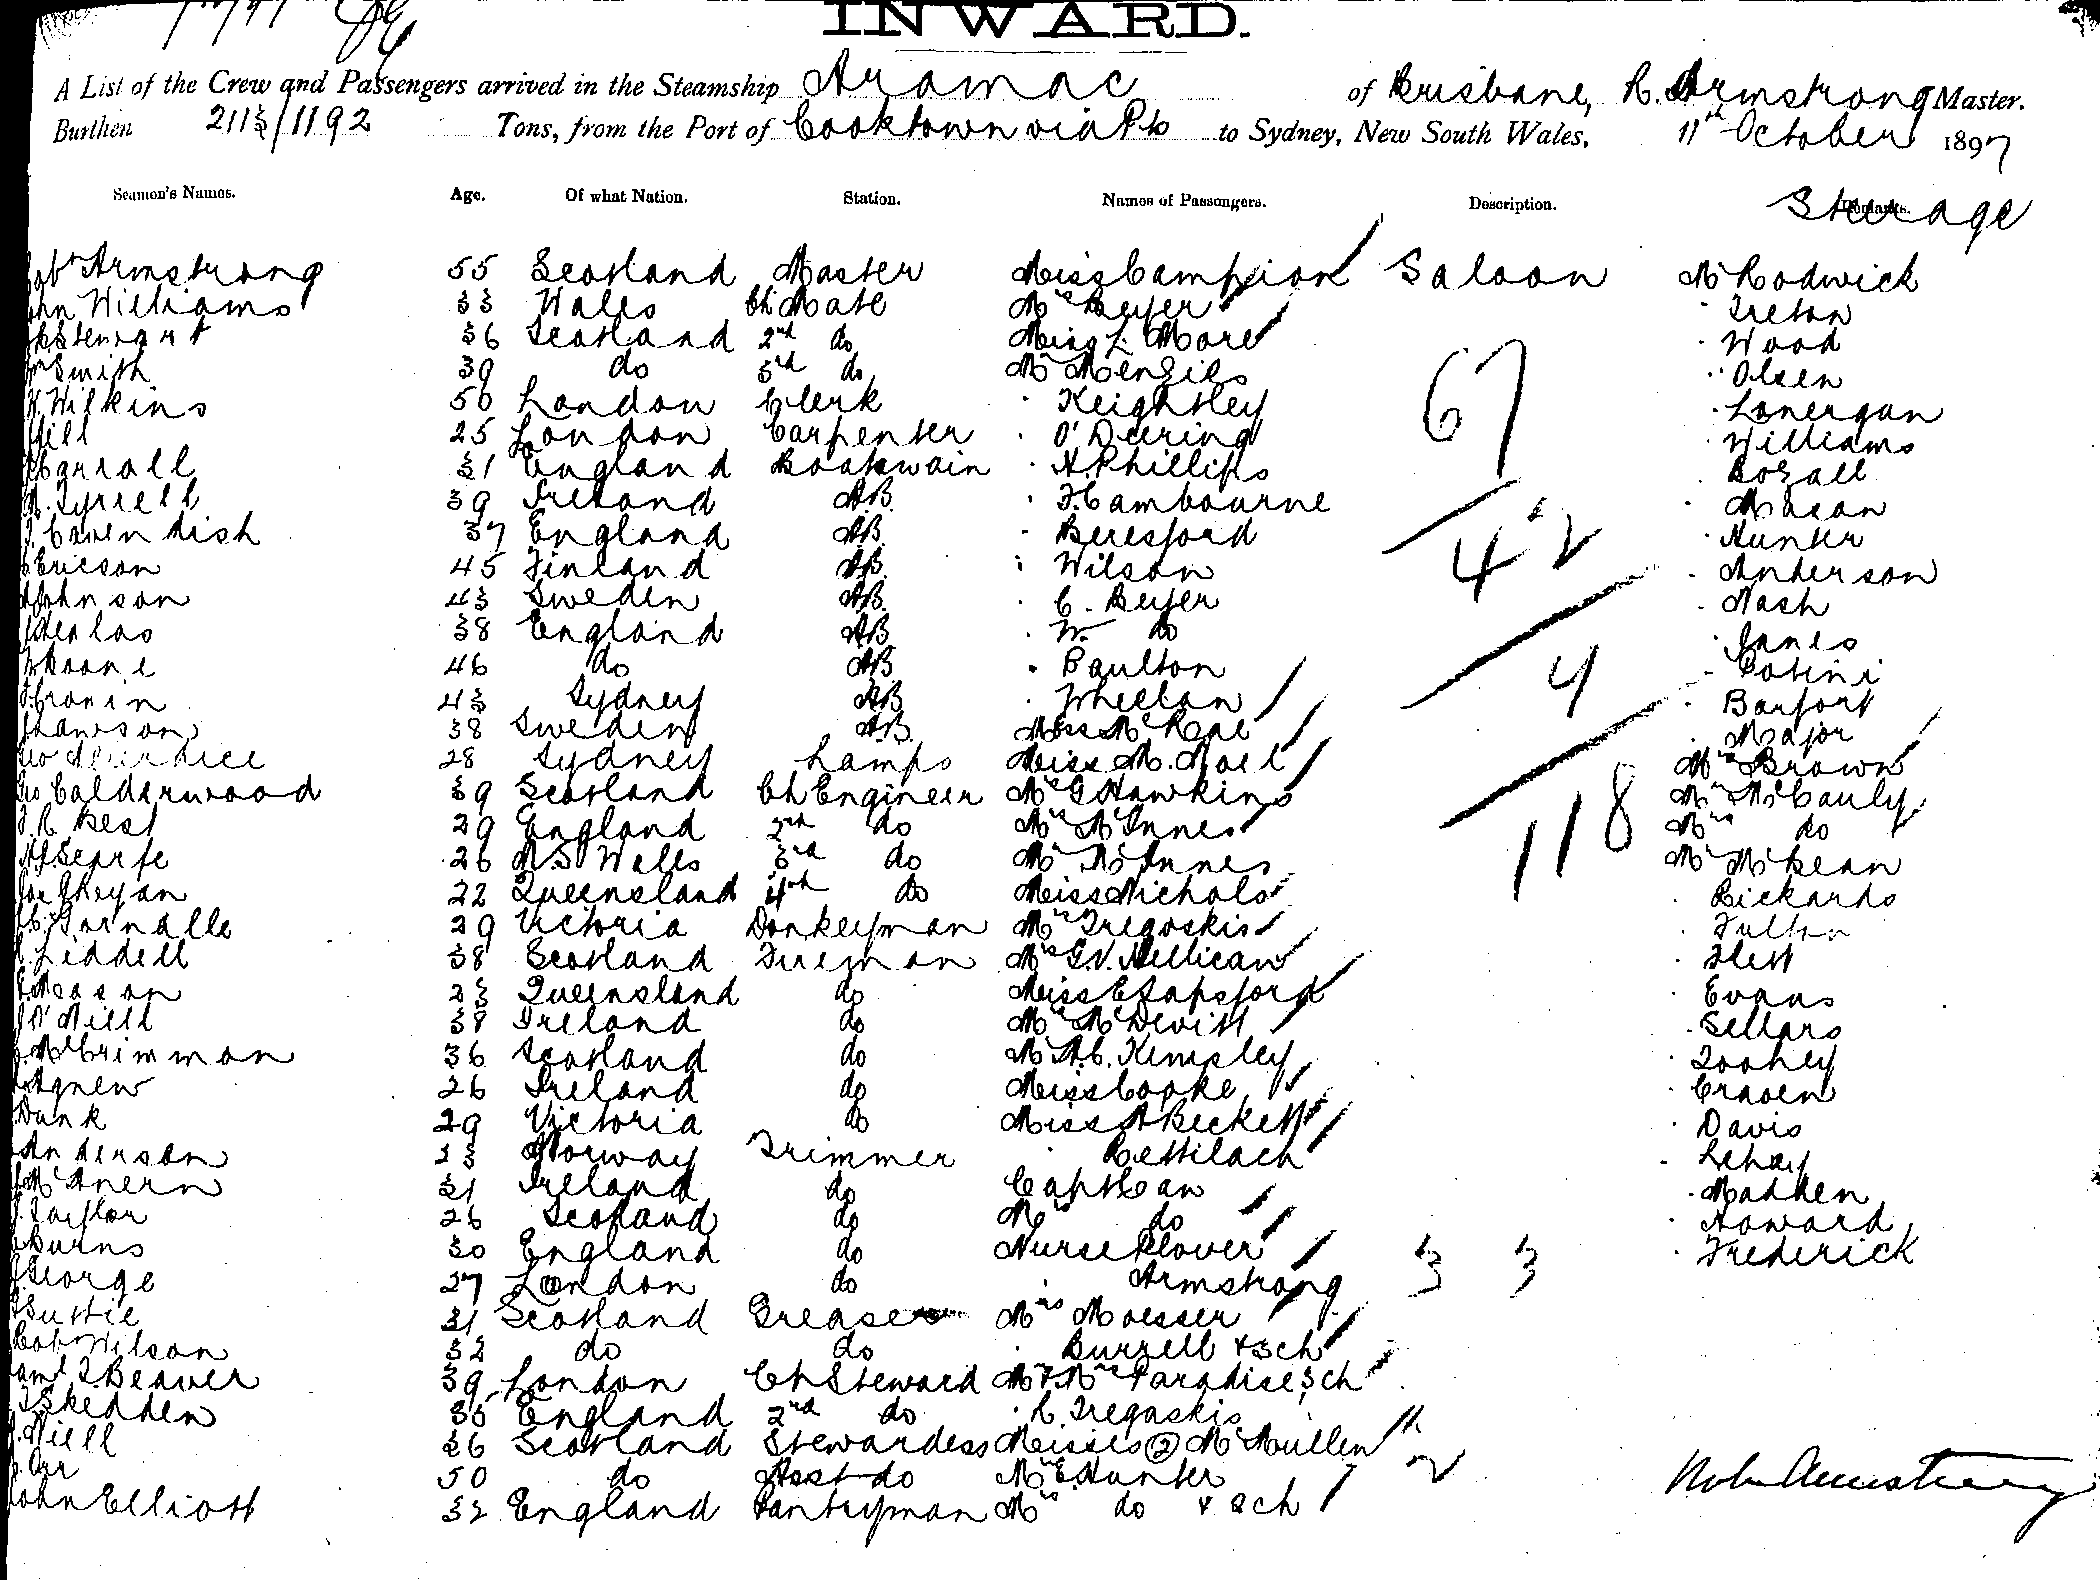 INWARD.
A List of the Crew and Passengers arrived in the Steamship Aramac of Brisbane, R. Armstrong Master.
Burthen 2113/1192 Tons, from the Port of Cooktown via Pts to Sydney, New South Wales, 11th October 1897
Seamen's Names. Age. Of what Nation. Station. Names of Passengers. Description. Remarks. Steerage
Robt Armstrong 55 Scotland Master Miss Campion Saloon Mr Rodwick
John Williams 33 Wales Ch Mate Mrs Beyer Ireton
Stewart 36 Scotland 2nd do Miss L. More Wood
Smith 39 do 3rd do Mr Menzies Olsen
Wilkins 50 London Clerk Keightley Lonergan
Hill 25 London Carpenter O'Deering Williams
Carroll 31 England Boatswain A. Phillips Bozall
Tyrrell 39 Ireland AB Hambourne Mason
Cavendish 37 England AB Beresford Hunter
Ericson 45 Finland AB Wilson Anderson
Johnson 43 Sweden AB C. Beyer Nash
38 England AB W. do Janes
46 do AB Boulton Cotini
Cronin 43 Sydney AB Wheelan Barfort
Lawson 38 Sweden AB Miss McRae Major
28 Sydney Lamps Miss M. Noel Mrs Brown
Geo Calderwood 39 Scotland Ch Engineer Mrs G Hawkins Mr McCauly
Best 29 England 2nd do Mrs McInnes Mrs do
Searfe 26 N.S. Wales 3rd do Mr McInnes Mr McBean
22 Queensland 4th do Miss Nichols Rickards
29 Victoria Donkeyman Mrs Tregaskis Fulton
Liddell 38 Scotland Fireman Mrs G.V. Hellicar Flett
Mason 23 Queensland do Miss E Tapsford Evans
O'Neill 38 Ireland do Mrs McDevitt Sellars
McCrimmon 36 Scotland do Mr A.C. Kempley Toohey
Agnew 26 Ireland do Miss Cooke Craven
Dunk 29 Victoria do Miss A Beckett Davis
Anderson 23 Norway Trimmer Rettilach Lehay
McAnern 31 Ireland do Capt Lean Madden
Taylor 26 Scotland do Mrs do Howard
Burns 30 England do Nurse Plover Frederick
George 27 London do Armstrong
31 Scotland Greaser Mrs Moesser
Robt Wilson 32 do do Burrell + 3 ch
Beaver 39 London Ch Steward Mr + Mrs Paradise 3 ch
Skedden 35 England 2nd do R. Tregaskis
Niell 36 Scotland Stewardess Misses (2) McMullen
Orr 50 do Asst do Mr E Hunter
John Elliott 32 England Pantryman Mrs do + 2 ch
67
42
4
118
3 3
2
Robt Armstrong